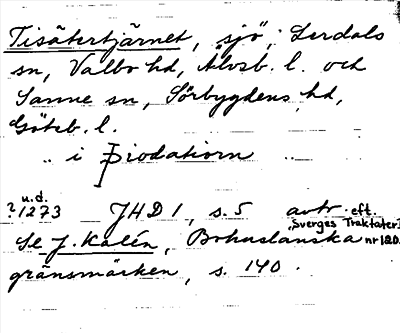 Tisätertjärnet, sjö, Lerdals
sn, Valbo hd, Älvsb. l. och
Sanne sn, Sörbygdens hd,
Göteb. l.
.. i Þiodatiorn ..
u.d.
?1273 JHD 1, s. 5 avtr. eft.
"Sveriges Traktater I
Se J. Kalén, Bohuslänska nr 120.
gränsmärken, s. 140.